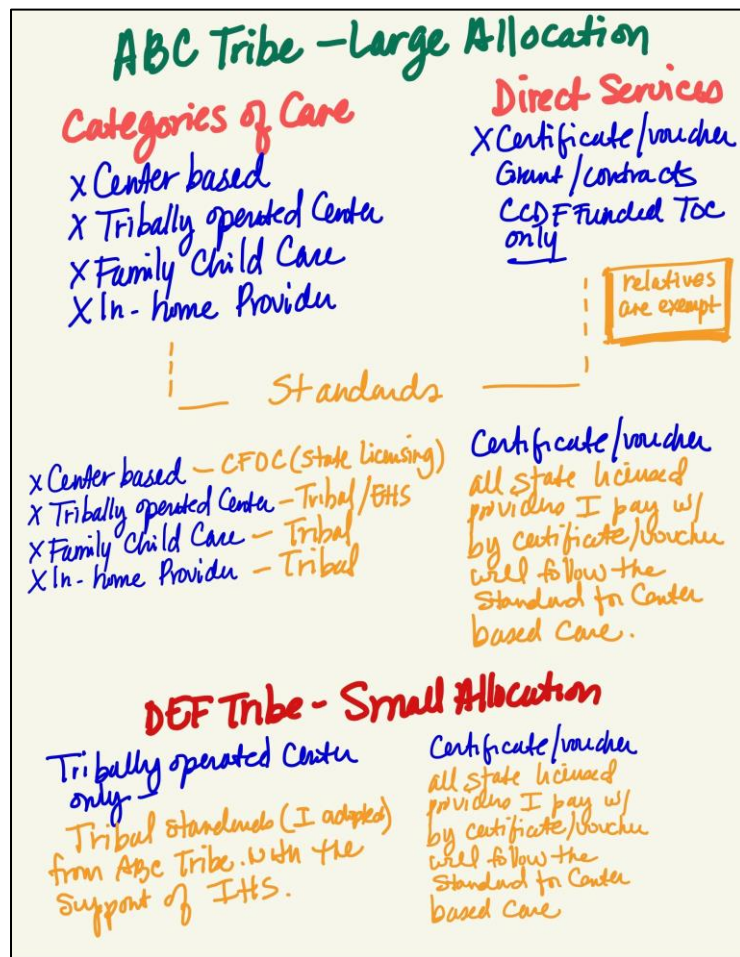 ABC Tribe - Large Allocation
Categories of Care
X Center based
X Tribally operated Center
X Family Child Care
X In-home Provider
Direct Services
X Certificate/voucher
Grant/contracts
CCDF Funded TOC
only
relatives
are exempt
Standards
X Center based - CFOC (State licensing)
X Tribally operated Center - Tribal/EHS
X Family Child Care - Tribal
X In-home Provider - Tribal
Certificate/voucher
all state licensed
providers I pay w/
by certificate/voucher
will follow the
Standard for Center
based care.
DEF Tribe - Small Allocation
Tribally operated Center
only -
Tribal standards (I adopted)
from ABC Tribe. with the
support of IHS.
Certificate/voucher
all state licensed
providers I pay w/
by certificate/voucher
will follow the
Standard for Center
based care